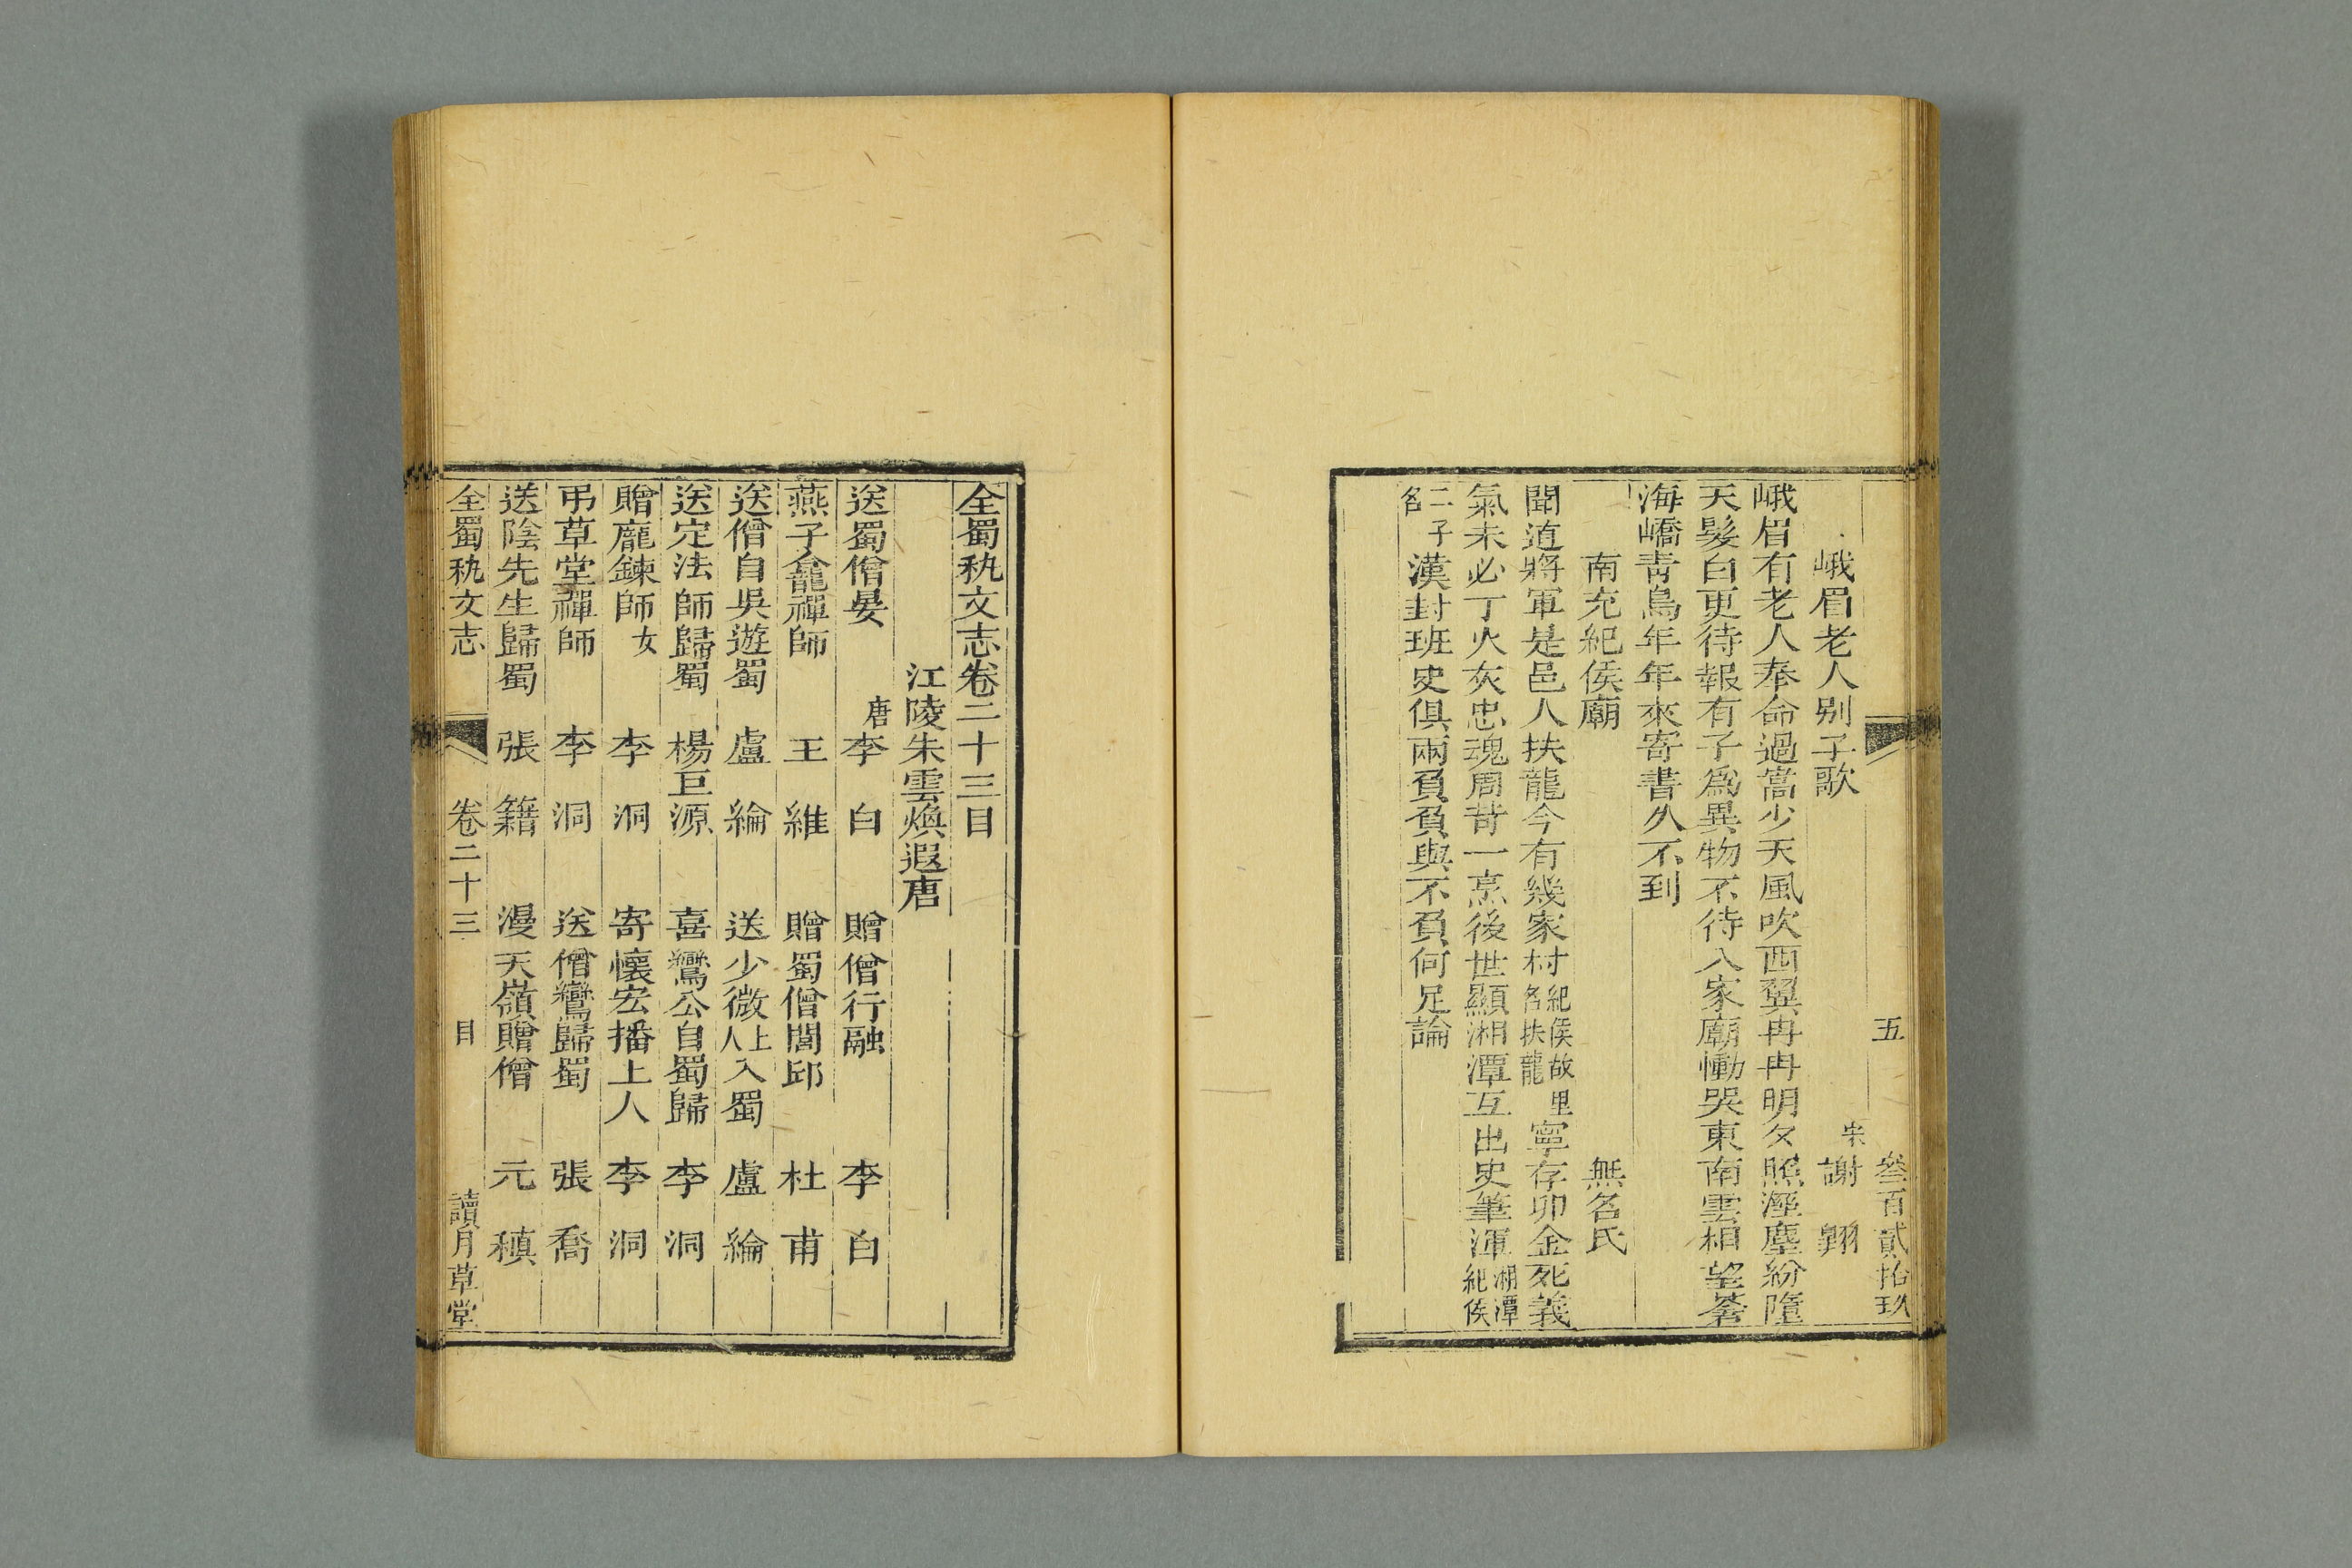 五 叄百貳拾玖
峨眉老人别子歌 宋 謝翺
峨眉有老人奉命過當少天風吹西翼冉冉明夕照溼塵紛墮
天髮白更待報有子爲異物不待八家廟慟哭東南雲相望答
海嶠青鳥年年來寄書久不到
南充紀侯廟 無名氏
聞道將軍是邑人扶龍今有幾家村紀侯故里名扶龍寧存卯金死義
氣未必丁火灰忠魂周苛一烹後世顯湘潭互出史筆渾湘潭紀侯
二子名漢封班史俱兩負負與不負何足論
全蜀秇文志卷二十三目
江陵朱雲煥遐唐
送蜀僧晏 唐李白 贈僧行融 李白
燕子龕禪師 王維 贈蜀僧閭邱 杜甫
送僧自吳遊蜀 盧綸 送少微上人入蜀 盧綸
送定法師歸蜀 楊巨源 喜鸞公自蜀歸 李洞
贈龐鍊師女 李洞 寄懷宏播上人 李洞
弔草堂禪師 李洞 送僧鸞歸蜀 張喬
送陰先生歸蜀 張籍 漫天嶺贈僧 元稹
全蜀秇文志 卷二十三 目 讀月草堂